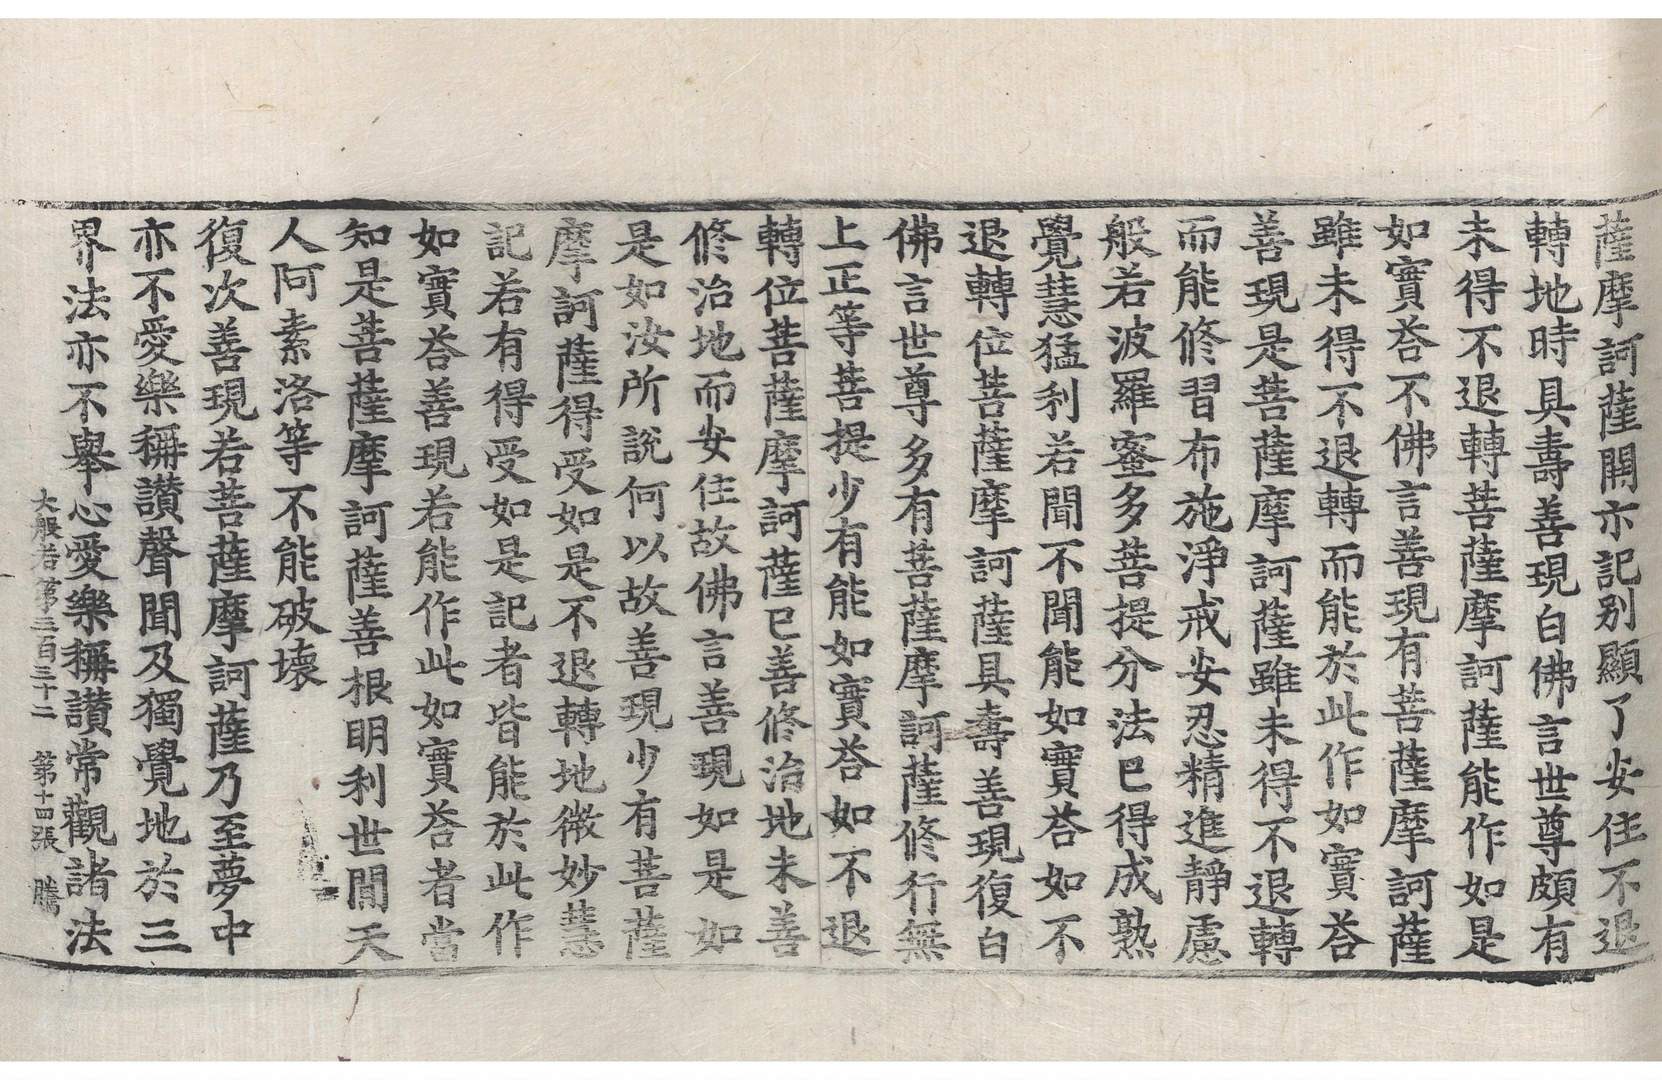 薩摩訶薩開亦記別顯了安住不退
轉地時具壽善現白佛言世尊頗有
未得不退轉菩薩摩訶薩能作如是
如實荅不佛言善現有菩薩摩訶薩
雖未得不退轉而能於此作如實荅
善現是菩薩摩訶薩雖未得不退轉
而能修習布施淨戒安忍精進靜慮
般若波羅蜜多菩提分法已得成熟
覺慧猛利若聞不聞能如實荅如不
退轉位菩薩摩訶薩具壽善現復白
佛言世尊多有菩薩摩訶薩修行無
上正等菩提少有能如實荅如不退
轉位菩薩摩訶薩已善修治地未善
修治地而安住故佛言善現如是如
是如汝所說何以故善現少有菩薩
摩訶薩得受如是不退轉地微妙慧
記若有得受如是記者皆能於此作
如實荅善現若能作此如實荅者當
知是菩薩摩訶薩善根明利世間天
人阿素洛等不能破壞
復次善現若菩薩摩訶薩乃至夢中
亦不愛樂稱讚聲聞及獨覺地於三
界法亦不舉心愛樂稱讚常觀諸法
大般若第三百三十二　第十四張　騰